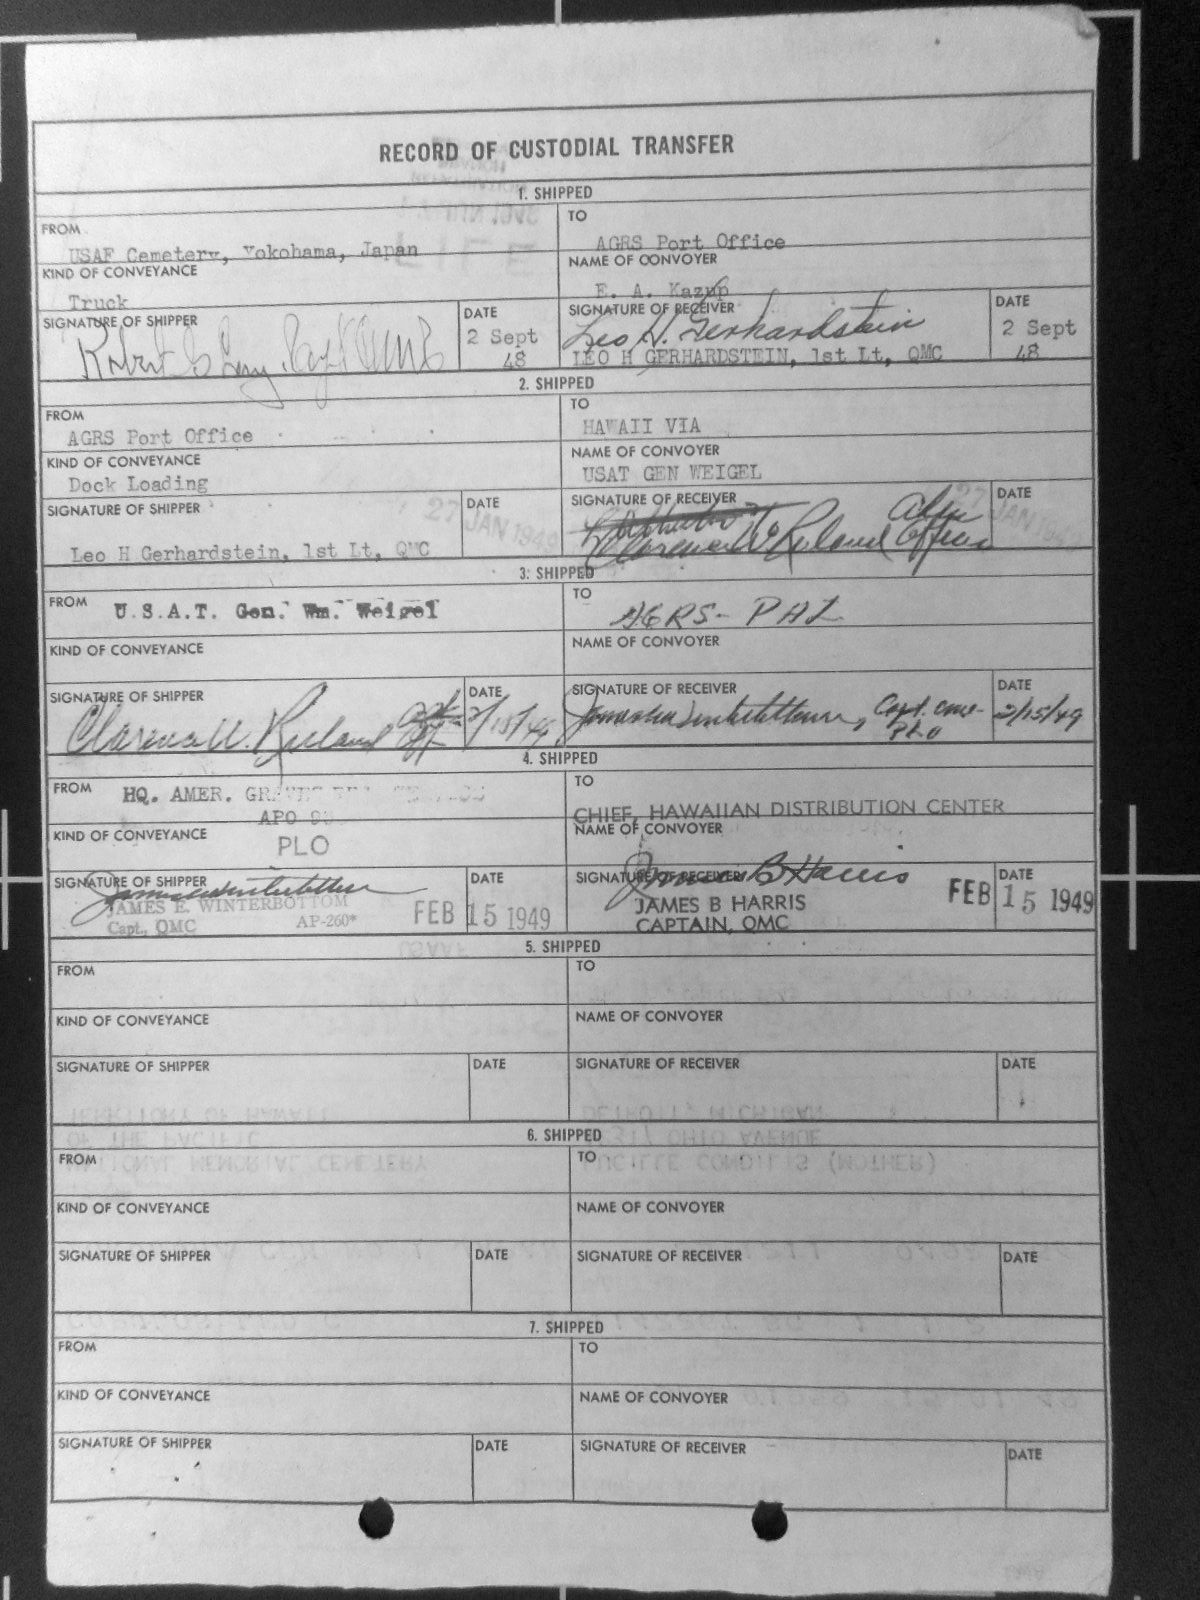 RECORD OF CUSTODIAL TRANSFER
1. SHIPPED
FROM
USAF Cemetery, Yokohama, Japan
TO
AGRS Port Office
KIND OF CONVEYANCE
Truck
NAME OF CONVOYER
E. A. Kazup
SIGNATURE OF SHIPPER
Robert
DATE
2 Sept
48
SIGNATURE OF RECEIVER
Leo H. Gerhardstein
LEO H GERHARDSTEIN, 1st Lt, QMC
DATE
2 Sept
48
2. SHIPPED
FROM
AGRS Port Office
TO
HAWAII VIA
KIND OF CONVEYANCE
Dock Loading
NAME OF CONVOYER
USAT GEN WEIGEL
SIGNATURE OF SHIPPER
Leo H Gerhardstein, 1st Lt, QMC
DATE
27 JAN 1949
SIGNATURE OF RECEIVER
Clarence
DATE
27 JAN
3. SHIPPED
FROM
U.S.A.T. Gen. Wm. Weigel
TO
AGRS-PAZ
KIND OF CONVEYANCE
NAME OF CONVOYER
SIGNATURE OF SHIPPER
Clarence W.
DATE
2/15/49
SIGNATURE OF RECEIVER
James E Winterbottom, Capt. QMC
PLO
DATE
2/15/49
4. SHIPPED
FROM
HQ. AMER. GRAVES
APO
TO
CHIEF, HAWAIIAN DISTRIBUTION CENTER
KIND OF CONVEYANCE
PLO
NAME OF CONVOYER
SIGNATURE OF SHIPPER
James E Winterbottom
JAMES E. WINTERBOTTOM
Capt., QMC AP-260*
DATE
FEB 15 1949
SIGNATURE OF RECEIVER
James B Harris
JAMES B HARRIS
CAPTAIN, QMC
DATE
FEB 15 1949
5. SHIPPED
FROM
TO
KIND OF CONVEYANCE
NAME OF CONVOYER
SIGNATURE OF SHIPPER
DATE
SIGNATURE OF RECEIVER
DATE
6. SHIPPED
FROM
TO
KIND OF CONVEYANCE
NAME OF CONVOYER
SIGNATURE OF SHIPPER
DATE
SIGNATURE OF RECEIVER
DATE
7. SHIPPED
FROM
TO
KIND OF CONVEYANCE
NAME OF CONVOYER
SIGNATURE OF SHIPPER
DATE
SIGNATURE OF RECEIVER
DATE